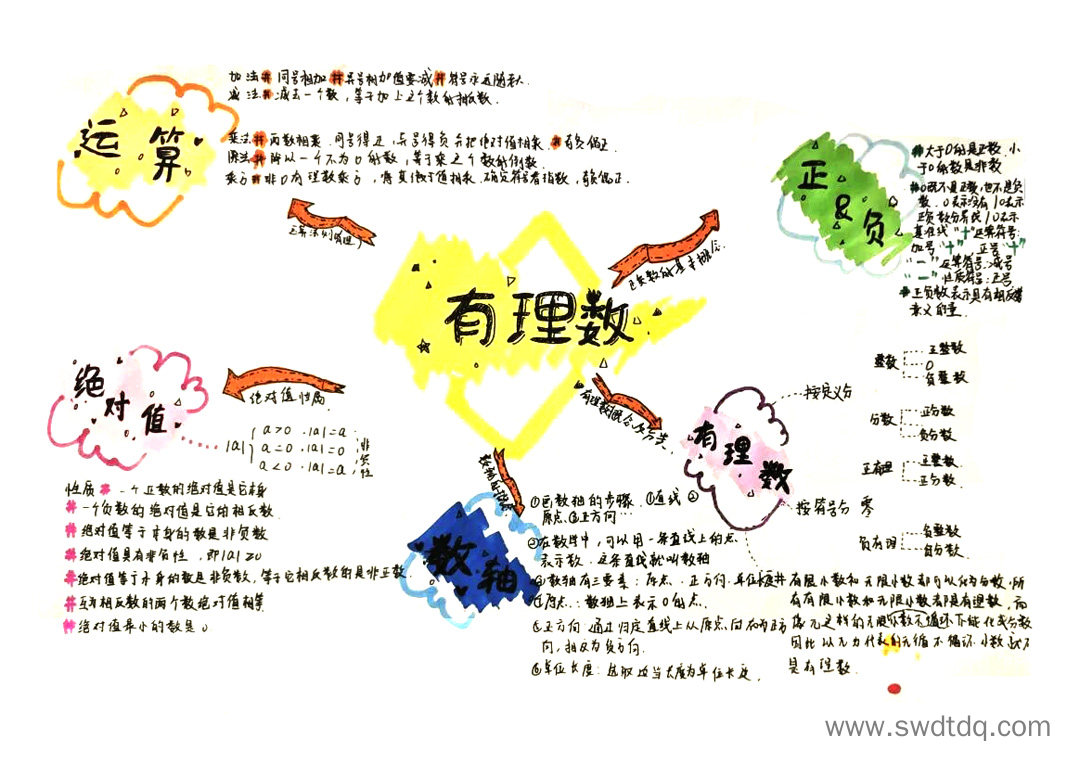 有理数
运算
运算法则(有理)
加法# 同号相加 #异号相加值要减 #符号永远随大.
减法# 减去一个数,等于加上这个数的相反数.
乘法# 两数相乘.同号得正,异号得负,并把绝对值相乘. #奇负偶正.
除法# 除以一个不为0的数,等于乘这个数的倒数.
乘方# 非0有理数乘方,
值相乘.确定符号看指数,奇负偶正.
正&负
正负数的基本概念
#大于0的是正数.小
于0的数是非数
#0既不是正数,也不是负
数.0表示没有/0表示
正负数分界点/0表示
基准线 "+"运算符号:
加号"+" 正号"+"
"一"运算符号:减号
"一"性质符号:
#正负数表示具有相反
意义的量.
绝对值
绝对值性质
|a| { a>0 .|a|=a
a=0 .|a|=0
a<0 .|a|=a
非负性
性质# 一个正数的绝对值是它本身
# 一个负数的绝对值是它的相反数
# 绝对值等于本身的数是非负数
# 绝对值具有非负性,即|a|≥0
#绝对值等于本身的数是非负数,等于它相反数的是非正数
# 互为相反数的两个数绝对值相等
# 绝对值最小的数是0.
数轴
①画数轴的步骤.①直线②
原点.③正方向…
②在数学中,可以用一条直线上的点
表示数,这条直线就叫数轴
③数轴有三要素:原点、正方向.单位长度
④原点:数轴上表示0的点.
⑤正方向:通过归定直线上从原点向右为正方
向,相反为负方向.
⑥单位长度:选取适当长度为单位长度.
有理数
有理数概念及分类
按定义分
整数
正整数
0
负整数
分数
正分数
负分数
按符号分
正有理
正整数
正分数
零
负有理
负整数
负分数
有限小数和无限小数都可以化为分数,所
有有限小数和无限小数都是有理数,而
像π这样的无限小数不循环不能化成分数
因此以π为代表的无循不循环小数
是有理数.
www.swdtdq.com